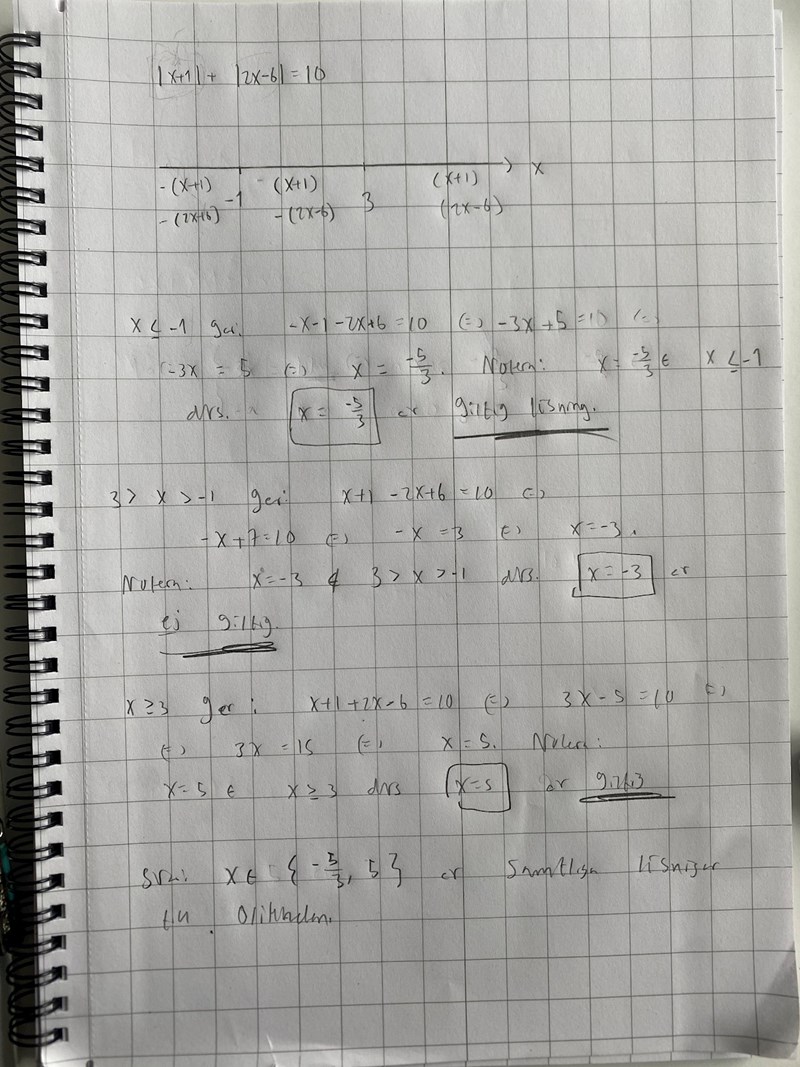 |x+1| + |2x-6| = 10
x
-(x+1) -1 (x+1) 3 (x+1)
-(2x+6) -(2x-6) (2x-6)
x ≤ -1 ger: -x-1-2x+6 = 10 (=) -3x+5 = 10 (=)
-3x = 5 (=) x = -5/3. Notera: x = -5/3 ∈ x ≤ -1
dvs. x = -5/3 er giltig lösning.
3 > x > -1 ger: x+1 -2x+6 = 10 (=)
-x+7 = 10 (=) -x = 3 (=) x = -3.
Notera: x = -3 ∉ 3 > x > -1 dvs. x = -3 er
ej giltig.
x ≥ 3 ger: x+1+2x-6 = 10 (=) 3x-5 = 10 (=)
(=) 3x = 15 (=) x = 5. Notera:
x = 5 ∈ x ≥ 3 dvs x = 5 är giltig
Svar: x ∈ {-5/3, 5} er samtliga lösningar
till